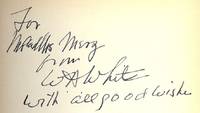 For
Mr & Mrs
from
W A White
with all good wishes